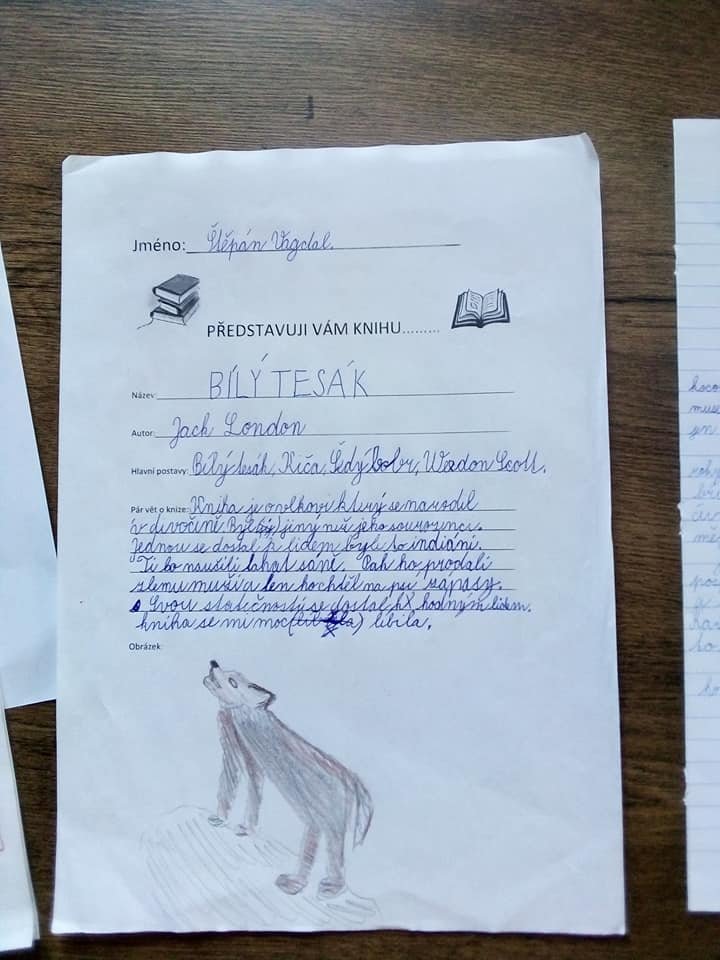 Jméno: Štěpán Vagdal.
PŘEDSTAVUJI VÁM KNIHU.........
Název: BÍLÝ TESÁK
Autor: Jack London
Hlavní postavy: Bílý tesák, Kiča, Šedý bobr, Weedon Scott.
Pár vět o knize: Kniha je o vlkovi který se narodil
v divočině Byl jiný než jeho sourozenci.
Jednou se dostal k lidem byli to indiáni.
Ti ho naučili tahat saně. Pak ho prodali
zlemu muži a ten ho chtěl na psí zapasy.
Svou statečností se dostal k hodným lidem.
kniha se mi moc líbila.
Obrázek: